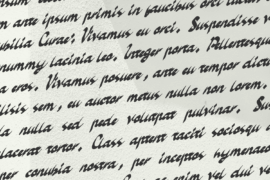 m ante ipsum primis in faucibus orci luctu
ubilia Curae; Vivamus eu orci. Suspendisse v
nummy lacinia leo. Integer porta. Pellentesque
a eros. Vivamus posuere, ante eu tempor dictu
llisis sem, eu auctor metus nulla non lorem.
la nulla sed pede volutpat pulvinar.
lacerat tortor. Class aptent taciti sociosqu
per conubia nostra, per inceptos hymenaeo
enim vel dui